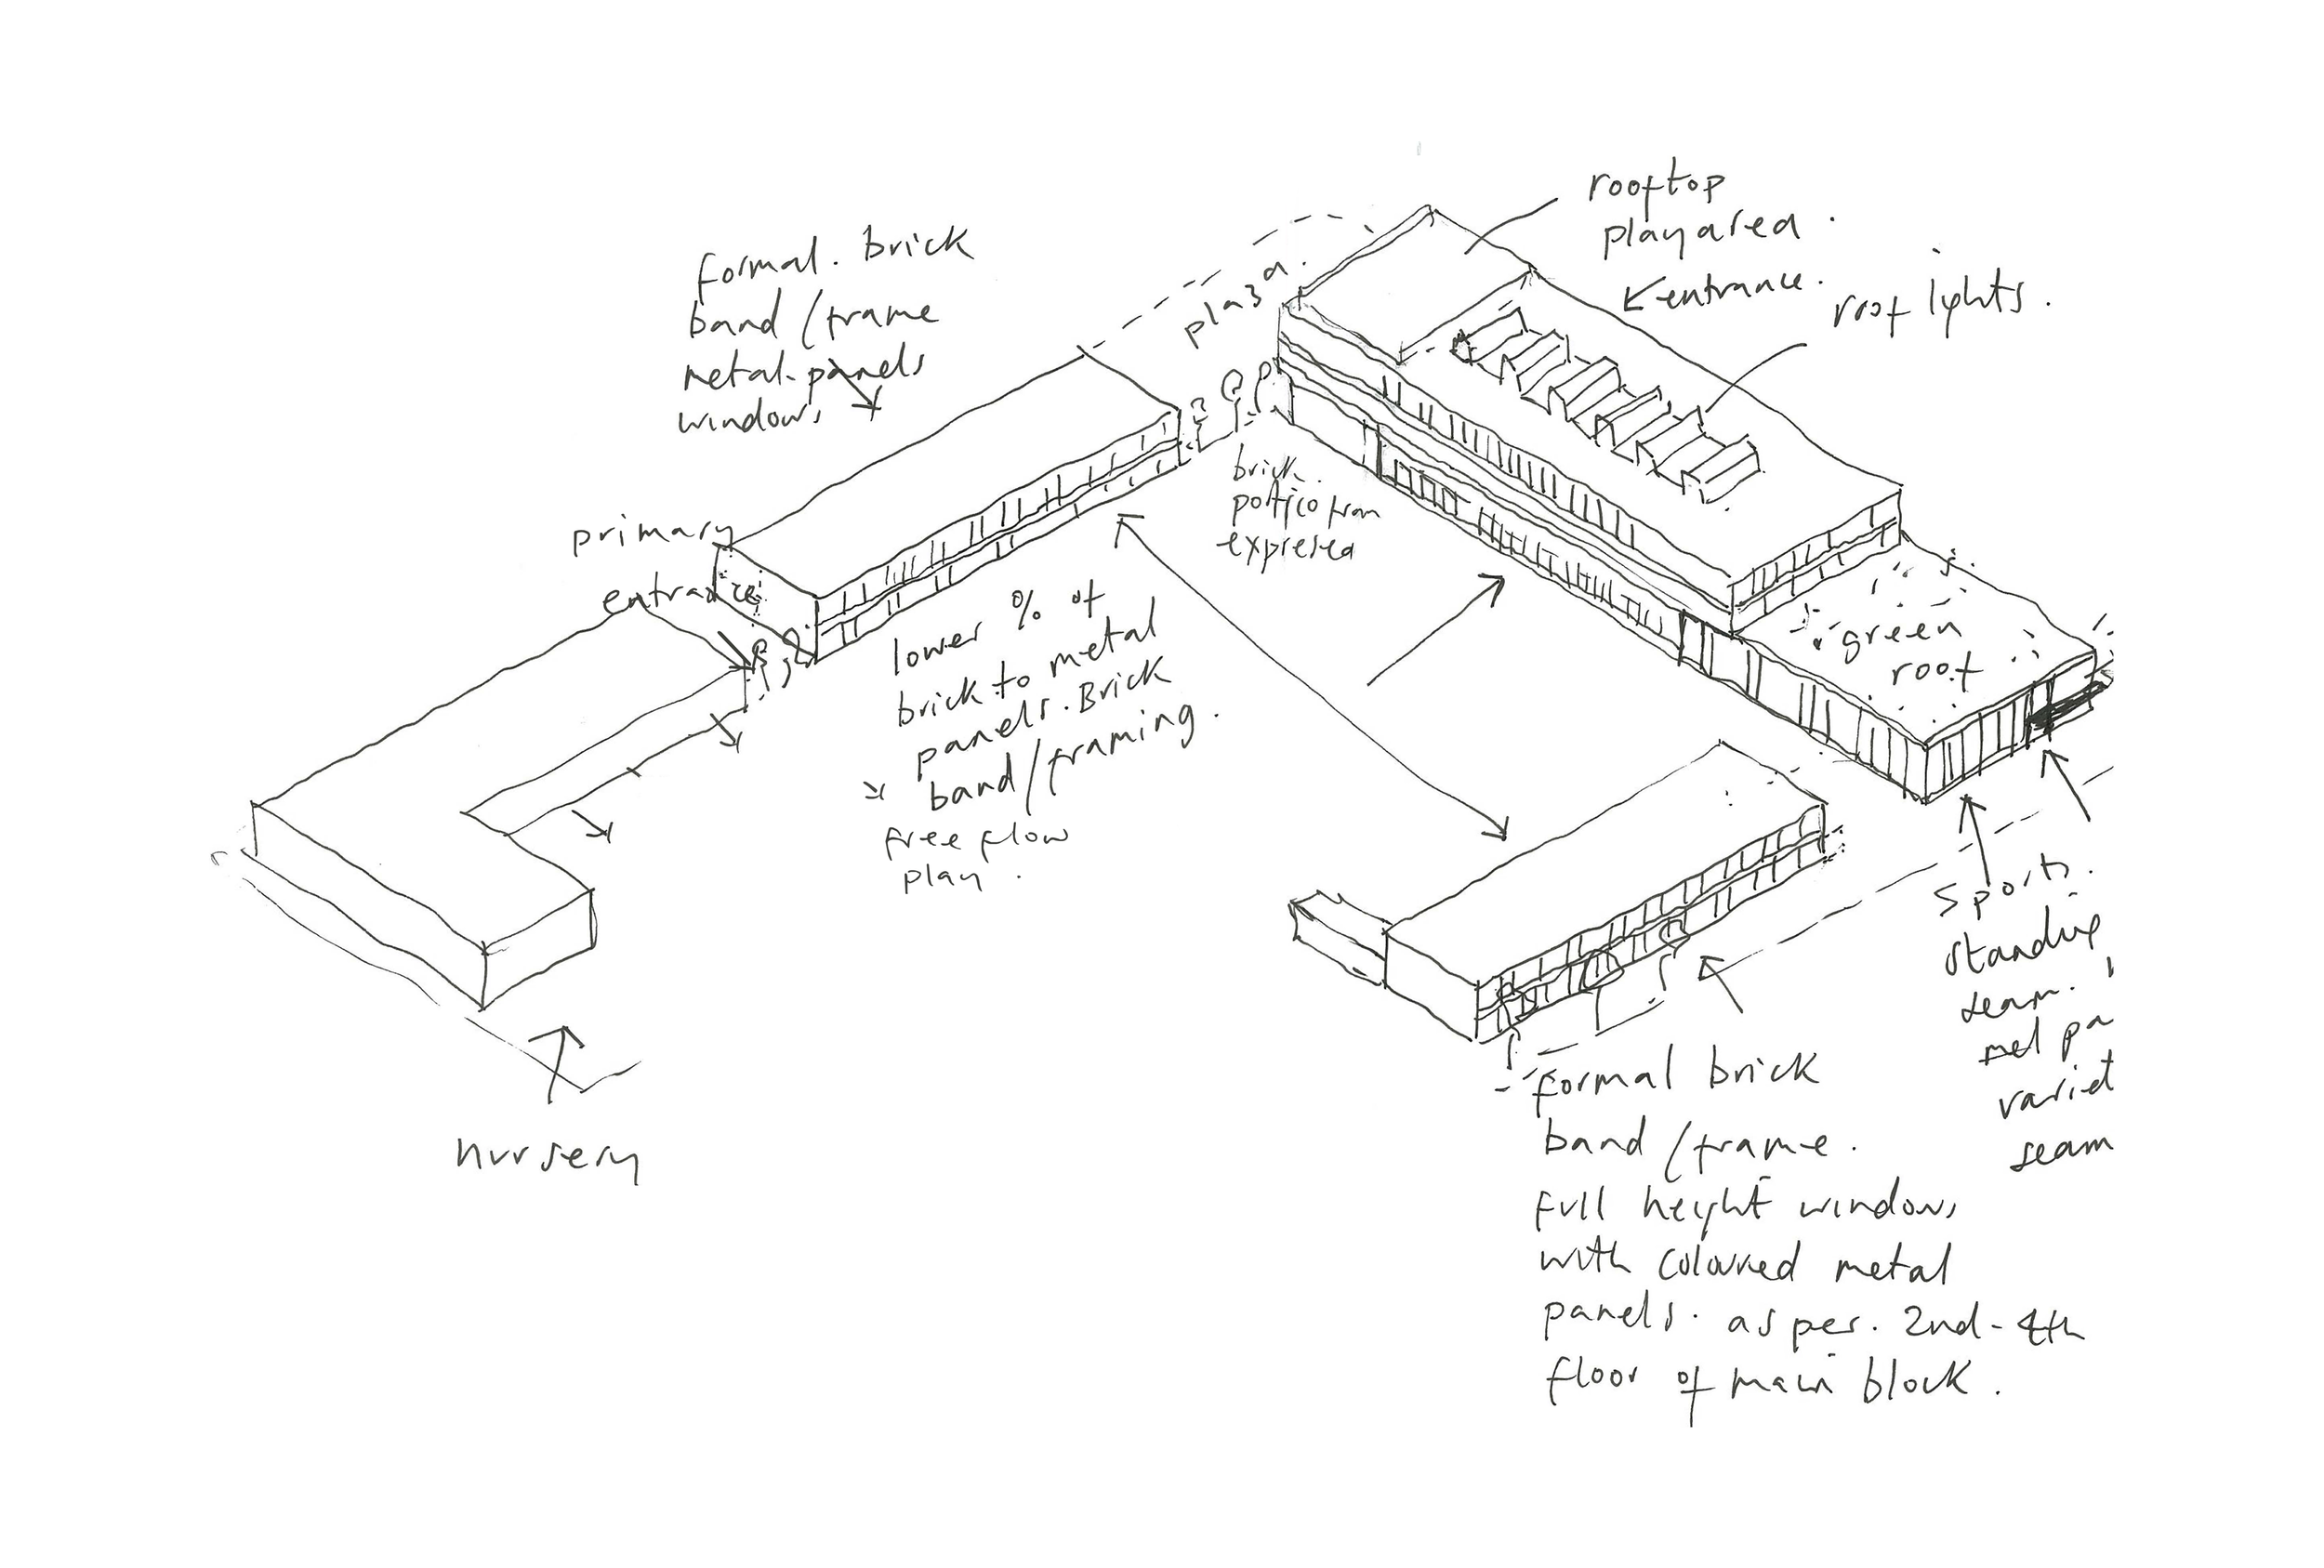 rooftop
play area.
entrance.
roof lights.
formal. brick
band / frame
metal panels
windows
plaza.
primary
entrance
brick
portico from
expressed
lower % of
brick to metal
panels. Brick
band / framing.
free flow
play.
green
roof
nursery
sports.
standing
seam.
pa
variet
seam
formal brick
band / frame.
full height windows
with coloured metal
panels. as per. 2nd - 4th
floor of main block.